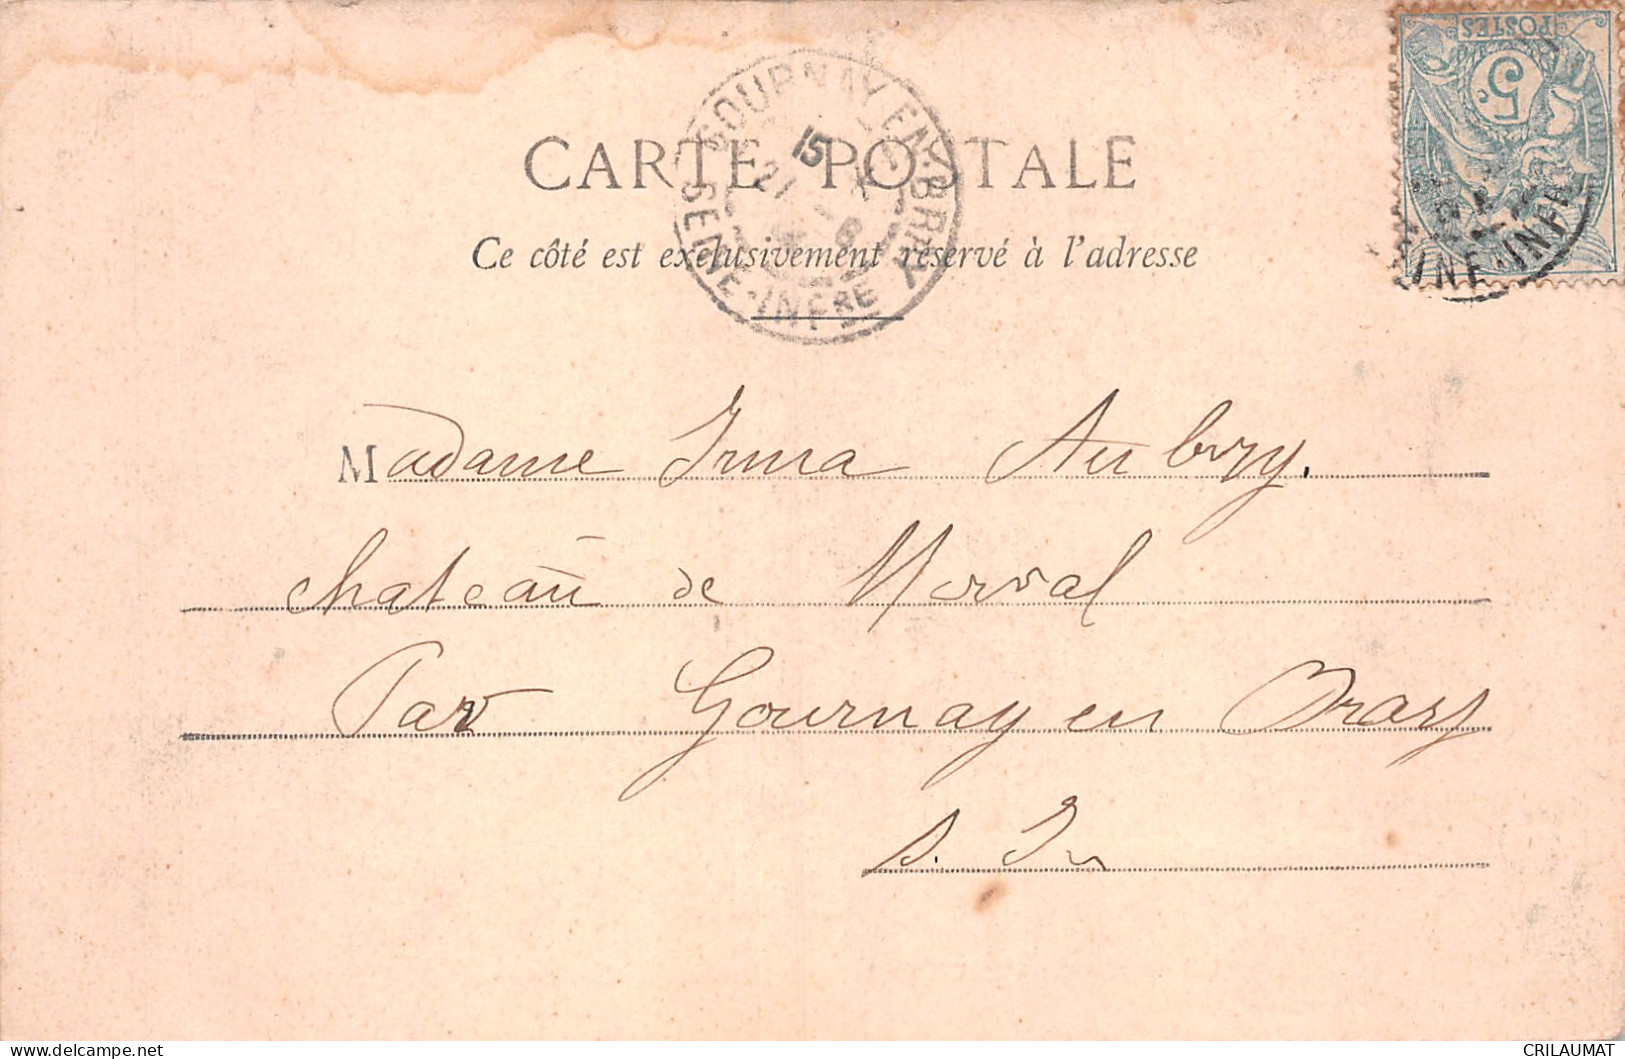 POSTES
5
GOURNAY-EN-BRAY
15
21
SEINE-INFRE
INF-INFRE
CARTE POSTALE
Ce côté est exclusivement réservé à l'adresse
Madame Irma Aubry,
chateau de Morval
Par Gournay en Bray
S. In
CRILAUMAT